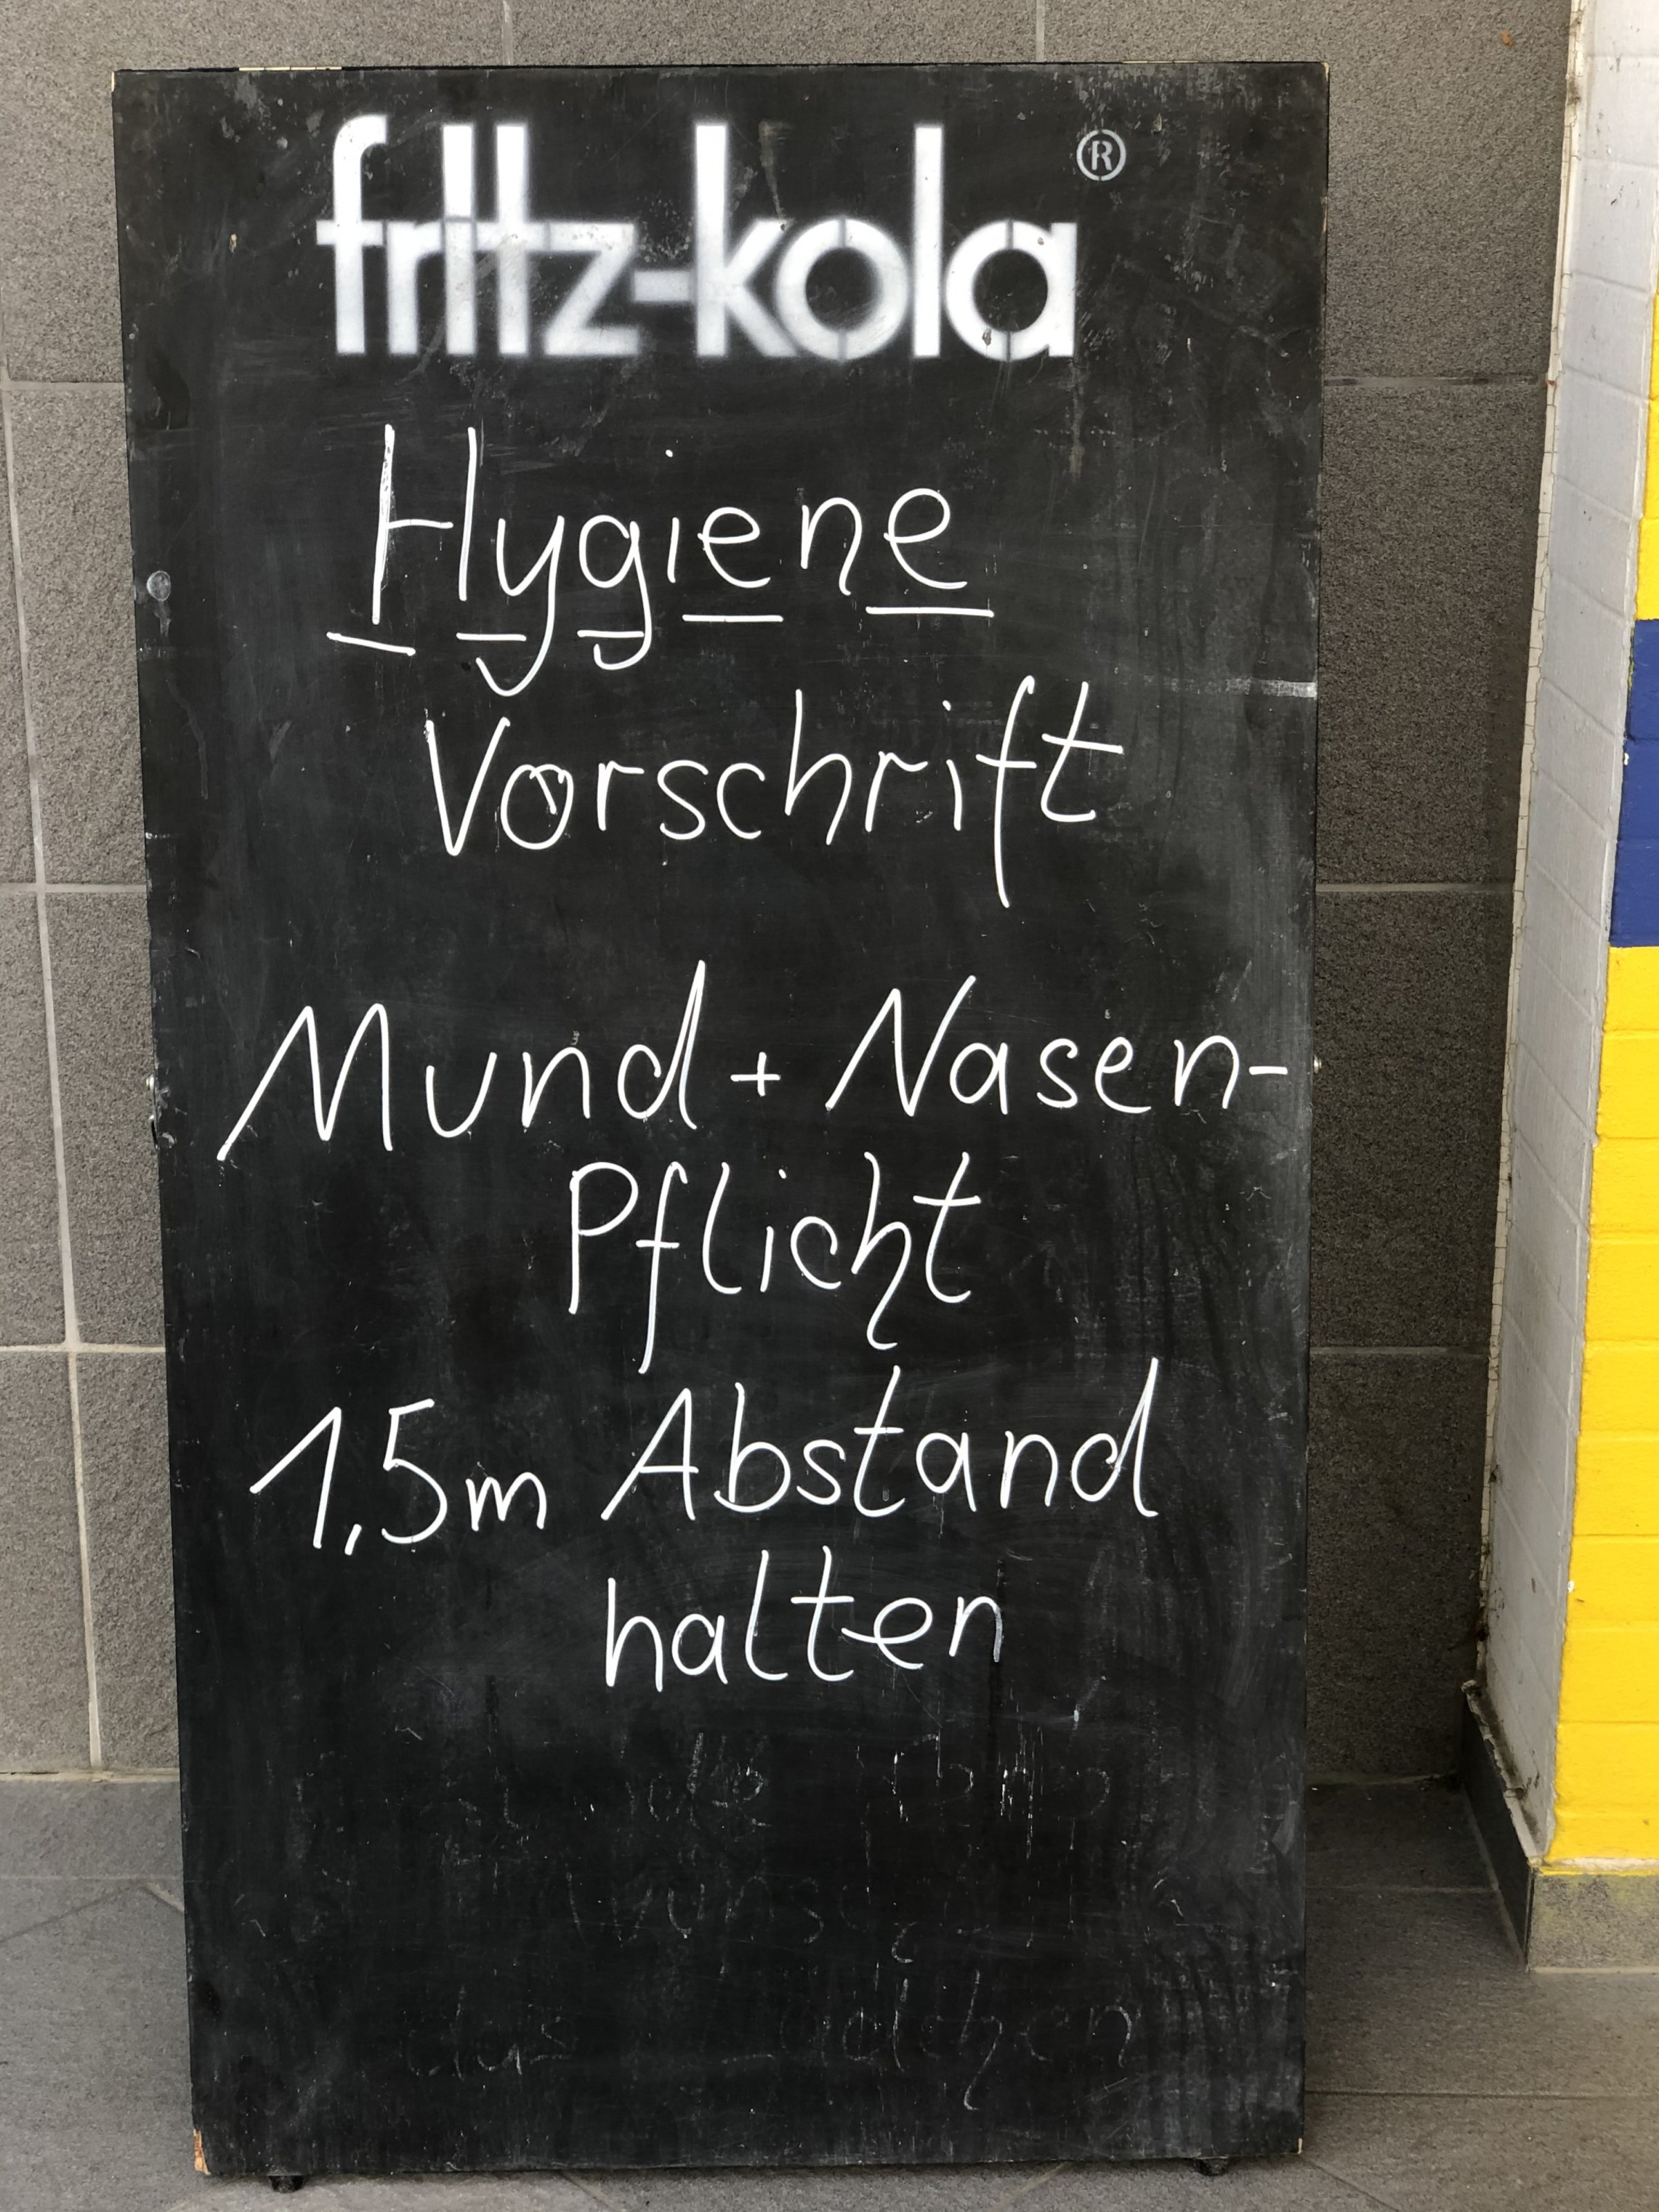 fritz-kola®
Hygiene
Vorschrift
Mund + Nasen-
Pflicht
1,5m Abstand
halten